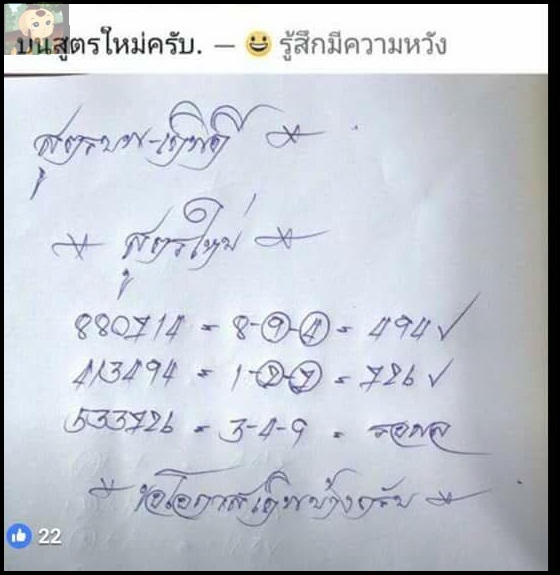 บนสูตรใหม่ครับ. — 😀 รู้สึกมีความหวัง
สูตรบน-เดินดี
สูตรใหม่
880714 = 8-9-4 = 494 ✓
413494 = 1-2-7 = 726 ✓
533726 = 3-4-9 = รอผล
ขอโอกาสเดินบ้างครับ
22